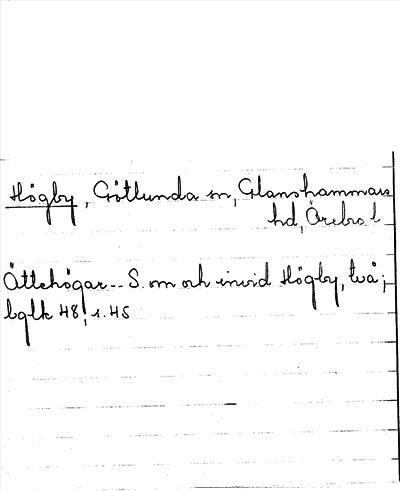 Högby, Götlunda sn, Glanshammars
hd, Örebro l
Ättehögar -- S. om och invid Högby, två;
bglk 48, s. 45